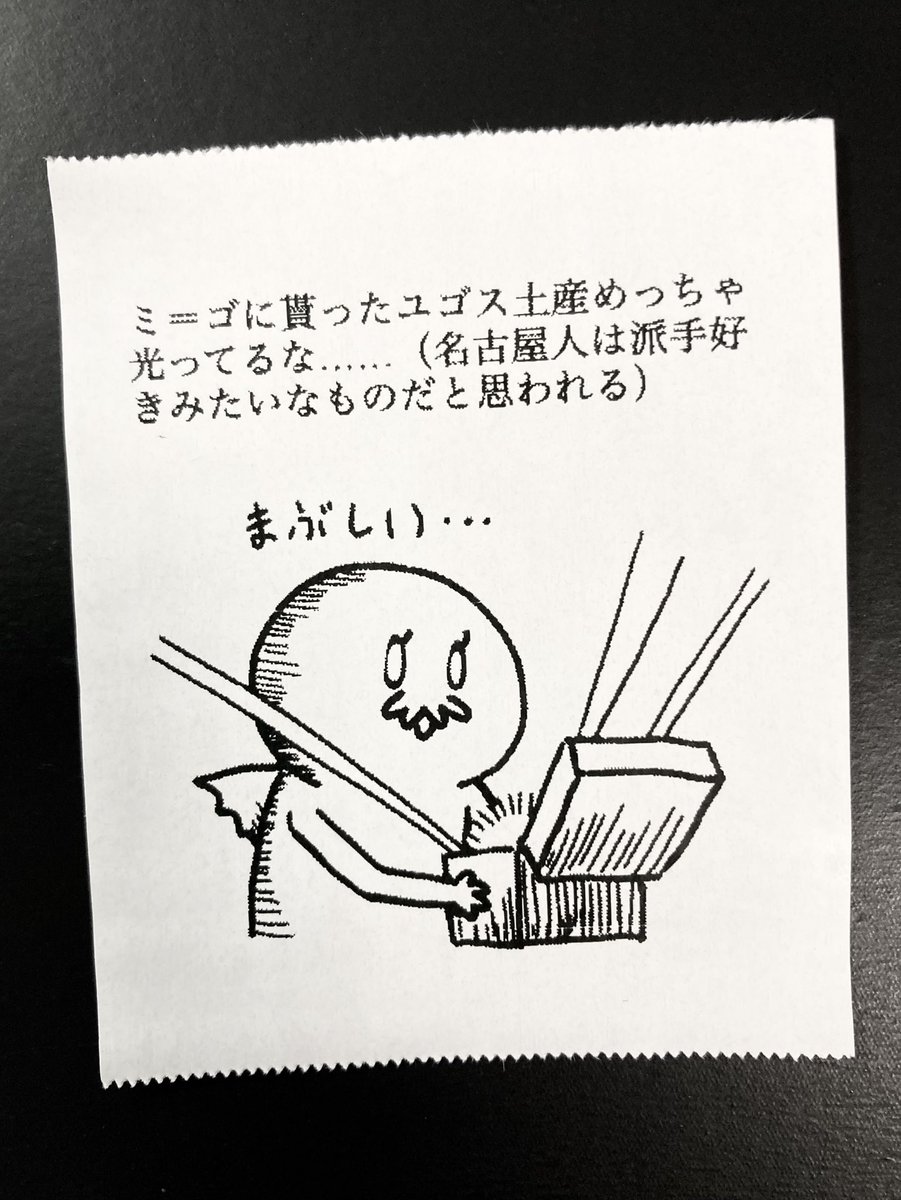 ミ＝ゴに貰ったユゴス土産めっちゃ
光ってるな……（名古屋人は派手好
きみたいなものだと思われる）
まぶしい…